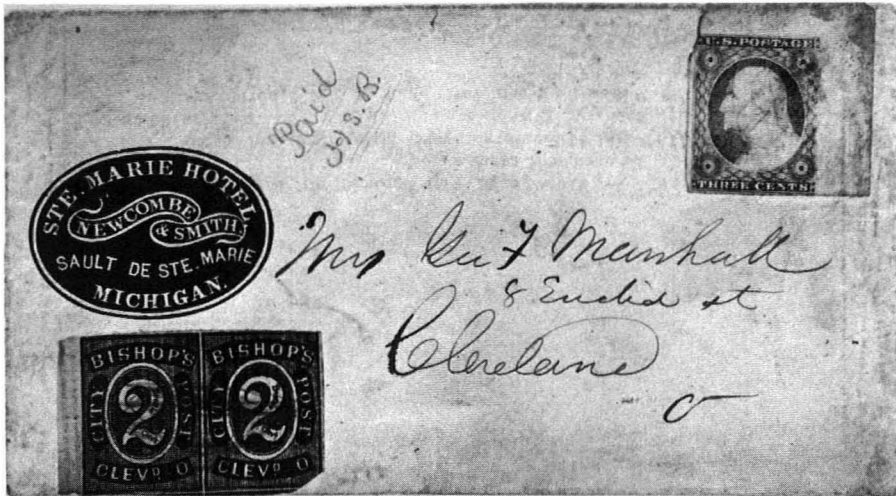 Paid
H.S.B.
U.S. POSTAGE
THREE CENTS
STE. MARIE HOTEL
NEWCOMBE
& SMITH,
SAULT DE STE. MARIE
MICHIGAN.
Mrs Geo F Marshall
8 Euclid st
Cleveland
O
BISHOP'S
CITY 2 POST
CLEVD. O
BISHOP'S
CITY 2 POST
CLEVD. O